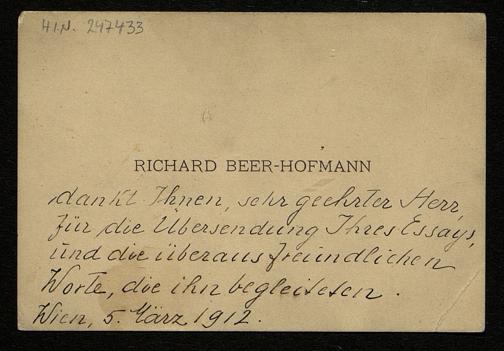 H.I.N. 247433
RICHARD BEER-HOFMANN
dankt Ihnen, sehr geehrter Herr,
für die Übersendung Ihres Essays,
und die überaus freundlichen
Worte, die ihn begleiteten.
Wien, 5. März 1912.